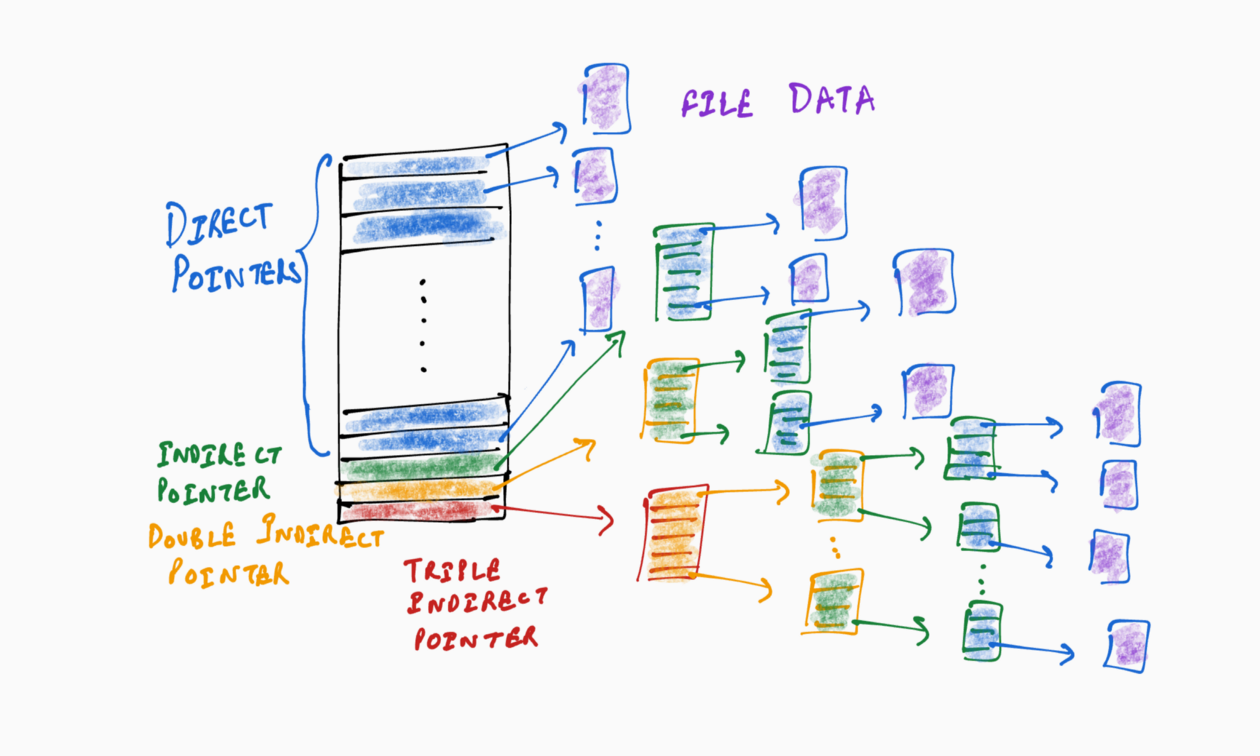 FILE DATA
DIRECT
POINTERS
INDIRECT
POINTER
DOUBLE INDIRECT
POINTER
TRIPLE
INDIRECT
POINTER